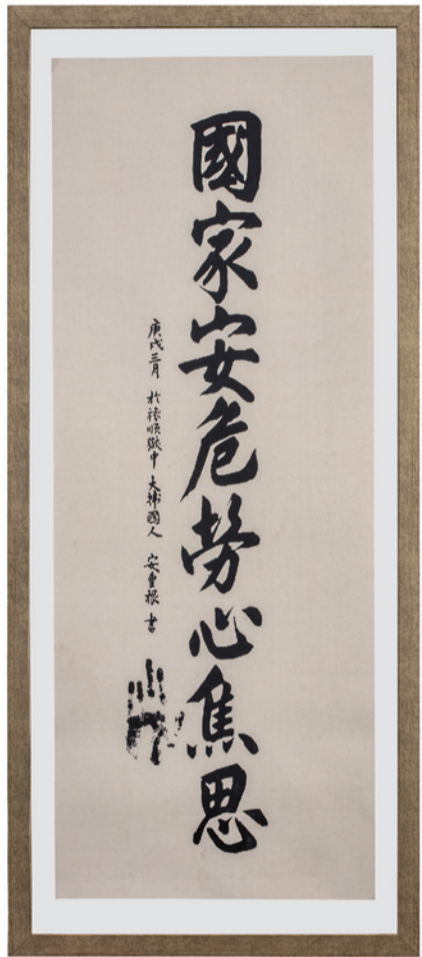 國家安危勞心焦思
庚戌三月 於旅順獄中 大韓國人 安重根 書